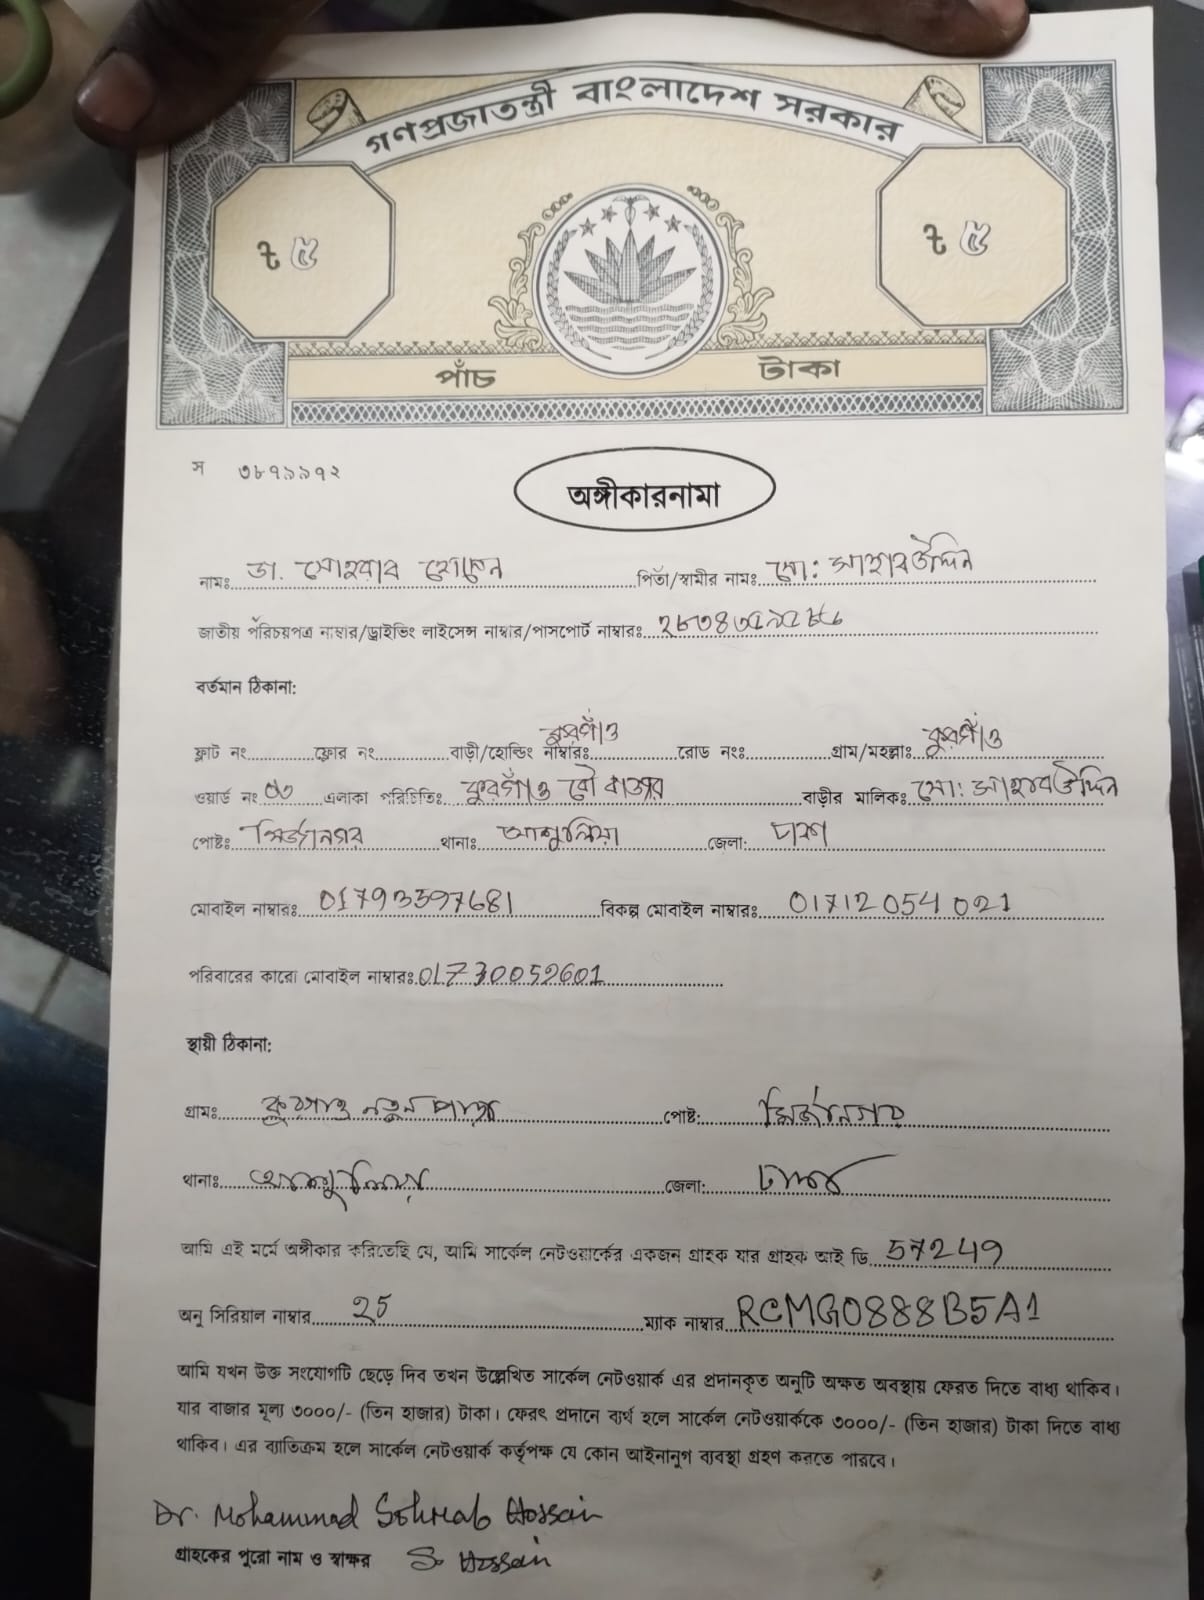 গণপ্রজাতন্ত্রী বাংলাদেশ সরকার
৳ ৫ ৳ ৫
পাঁচ টাকা
স ৩৮৭৯৯৭২
অঙ্গীকারনামা
নামঃ ডা. সোহরাব হোসেন পিতা/স্বামীর নামঃ মো: সাহাবউদ্দিন
জাতীয় পরিচয়পত্র নাম্বার/ড্রাইভিং লাইসেন্স নাম্বার/পাসপোর্ট নাম্বারঃ
বর্তমান ঠিকানা:
ফ্লাট নং ফ্লোর নং বাড়ী/হোল্ডিং নাম্বারঃ কুরগাঁও রোড নংঃ গ্রাম/মহল্লাঃ কুরগাঁও
ওয়ার্ড নং এলাকা পরিচিতিঃ কুরগাঁও বাড়ীর মালিকঃ মো: সাহাবউদ্দিন
পোষ্টঃ মির্জানগর থানাঃ আশুলিয়া জেলা: ঢাকা
মোবাইল নাম্বারঃ 01793597681 বিকল্প মোবাইল নাম্বারঃ 01712054021
পরিবারের কারো মোবাইল নাম্বারঃ 01730052601
স্থায়ী ঠিকানা:
গ্রামঃ কুরগাঁও নতুন পাড়া পোষ্ট: মির্জানগর
থানাঃ আশুলিয়া জেলা: ঢাকা
আমি এই মর্মে অঙ্গীকার করিতেছি যে, আমি সার্কেল নেটওয়ার্কের একজন গ্রাহক যার গ্রাহক আই ডি 57249
অনু সিরিয়াল নাম্বার 25 ম্যাক নাম্বার RCMG0888B5A1
আমি যখন উক্ত সংযোগটি ছেড়ে দিব তখন উল্লেখিত সার্কেল নেটওয়ার্ক এর প্রদানকৃত অনুটি অক্ষত অবস্থায় ফেরত দিতে বাধ্য থাকিব।
যার বাজার মূল্য ৩০০০/- (তিন হাজার) টাকা। ফেরৎ প্রদানে ব্যর্থ হলে সার্কেল নেটওয়ার্ককে ৩০০০/- (তিন হাজার) টাকা দিতে বাধ্য
থাকিব। এর ব্যাতিক্রম হলে সার্কেল নেটওয়ার্ক কর্তৃপক্ষ যে কোন আইনানুগ ব্যবস্থা গ্রহণ করতে পারবে।
Dr. Mohammad Sohrab Hossain
গ্রাহকের পুরো নাম ও স্বাক্ষর S. Hossain